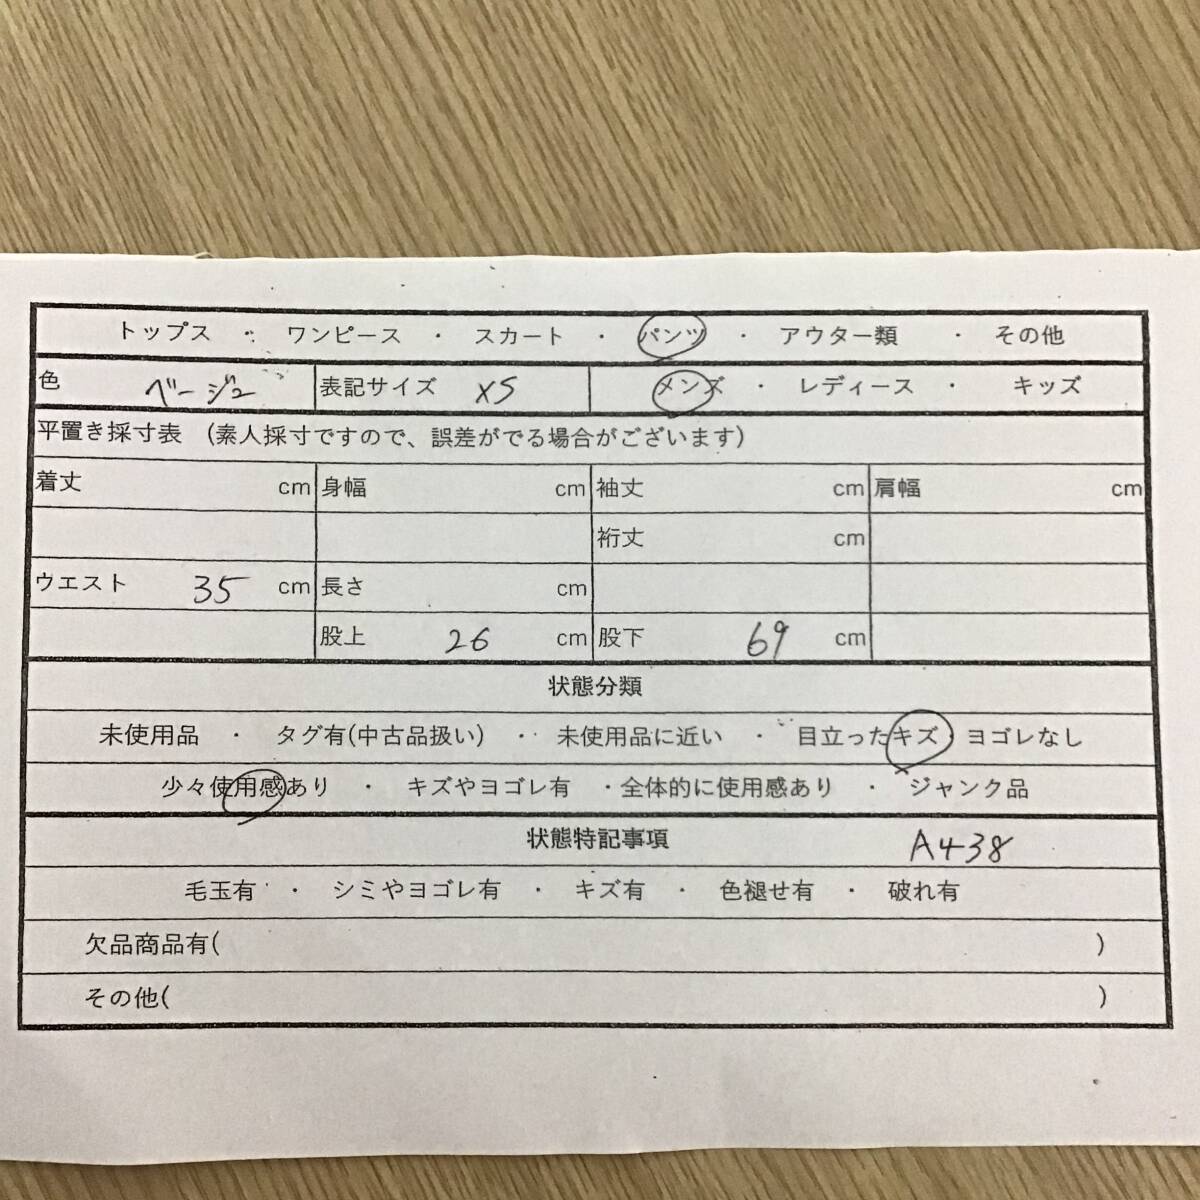 トップス ・ ワンピース ・ スカート ・ パンツ ・ アウター類 ・ その他
色 ベージュ 表記サイズ XS メンズ ・ レディース ・ キッズ
平置き採寸表 (素人採寸ですので、誤差がでる場合がございます)
着丈 cm 身幅 cm 袖丈 cm 肩幅 cm
裄丈 cm
ウエスト 35 cm 長さ cm
股上 26 cm 股下 69 cm
状態分類
未使用品 ・ タグ有(中古品扱い) ・ 未使用品に近い ・ 目立ったキズ ヨゴレなし
少々使用感あり ・ キズやヨゴレ有 ・全体的に使用感あり ・ ジャンク品
状態特記事項 A438
毛玉有 ・ シミやヨゴレ有 ・ キズ有 ・ 色褪せ有 ・ 破れ有
欠品商品有( )
その他( )